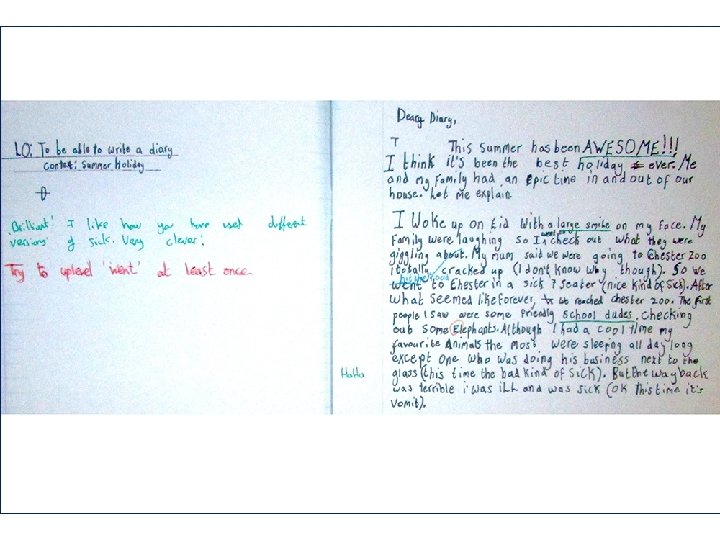 LO: To be able to write a diary
Context: Summer Holiday
Brilliant! I like how you have used different
versions of sick. Very clever!
Try to uplevel 'went' at least once.
Deary Diary,
This summer has been AWESOME!!!
I think it's been the best holiday ever. Me
and my family had an epic time in and out of our
house. Let me explain
I Woke up on Eid with a large smile on my face. My
Family were laughing so I went to check out what they were
giggling about. My mum said we were going to Chester Zoo
i totally cracked up (I don't know why though). So we
went to Chester in a sick 7 seater (nice kind of sick). After
what seemed like forever, we reached chester zoo. The first
people I saw were some friendly school dudes, checking
out some Elephants. Although I had a cool time my
favourite animals the most were sleepng all day long
except one who was doing his business next to the
Haha
glass (this time the bad kind of sick). But the way back
was terrible i was iLL and was sick (ok this time it's
vomit).